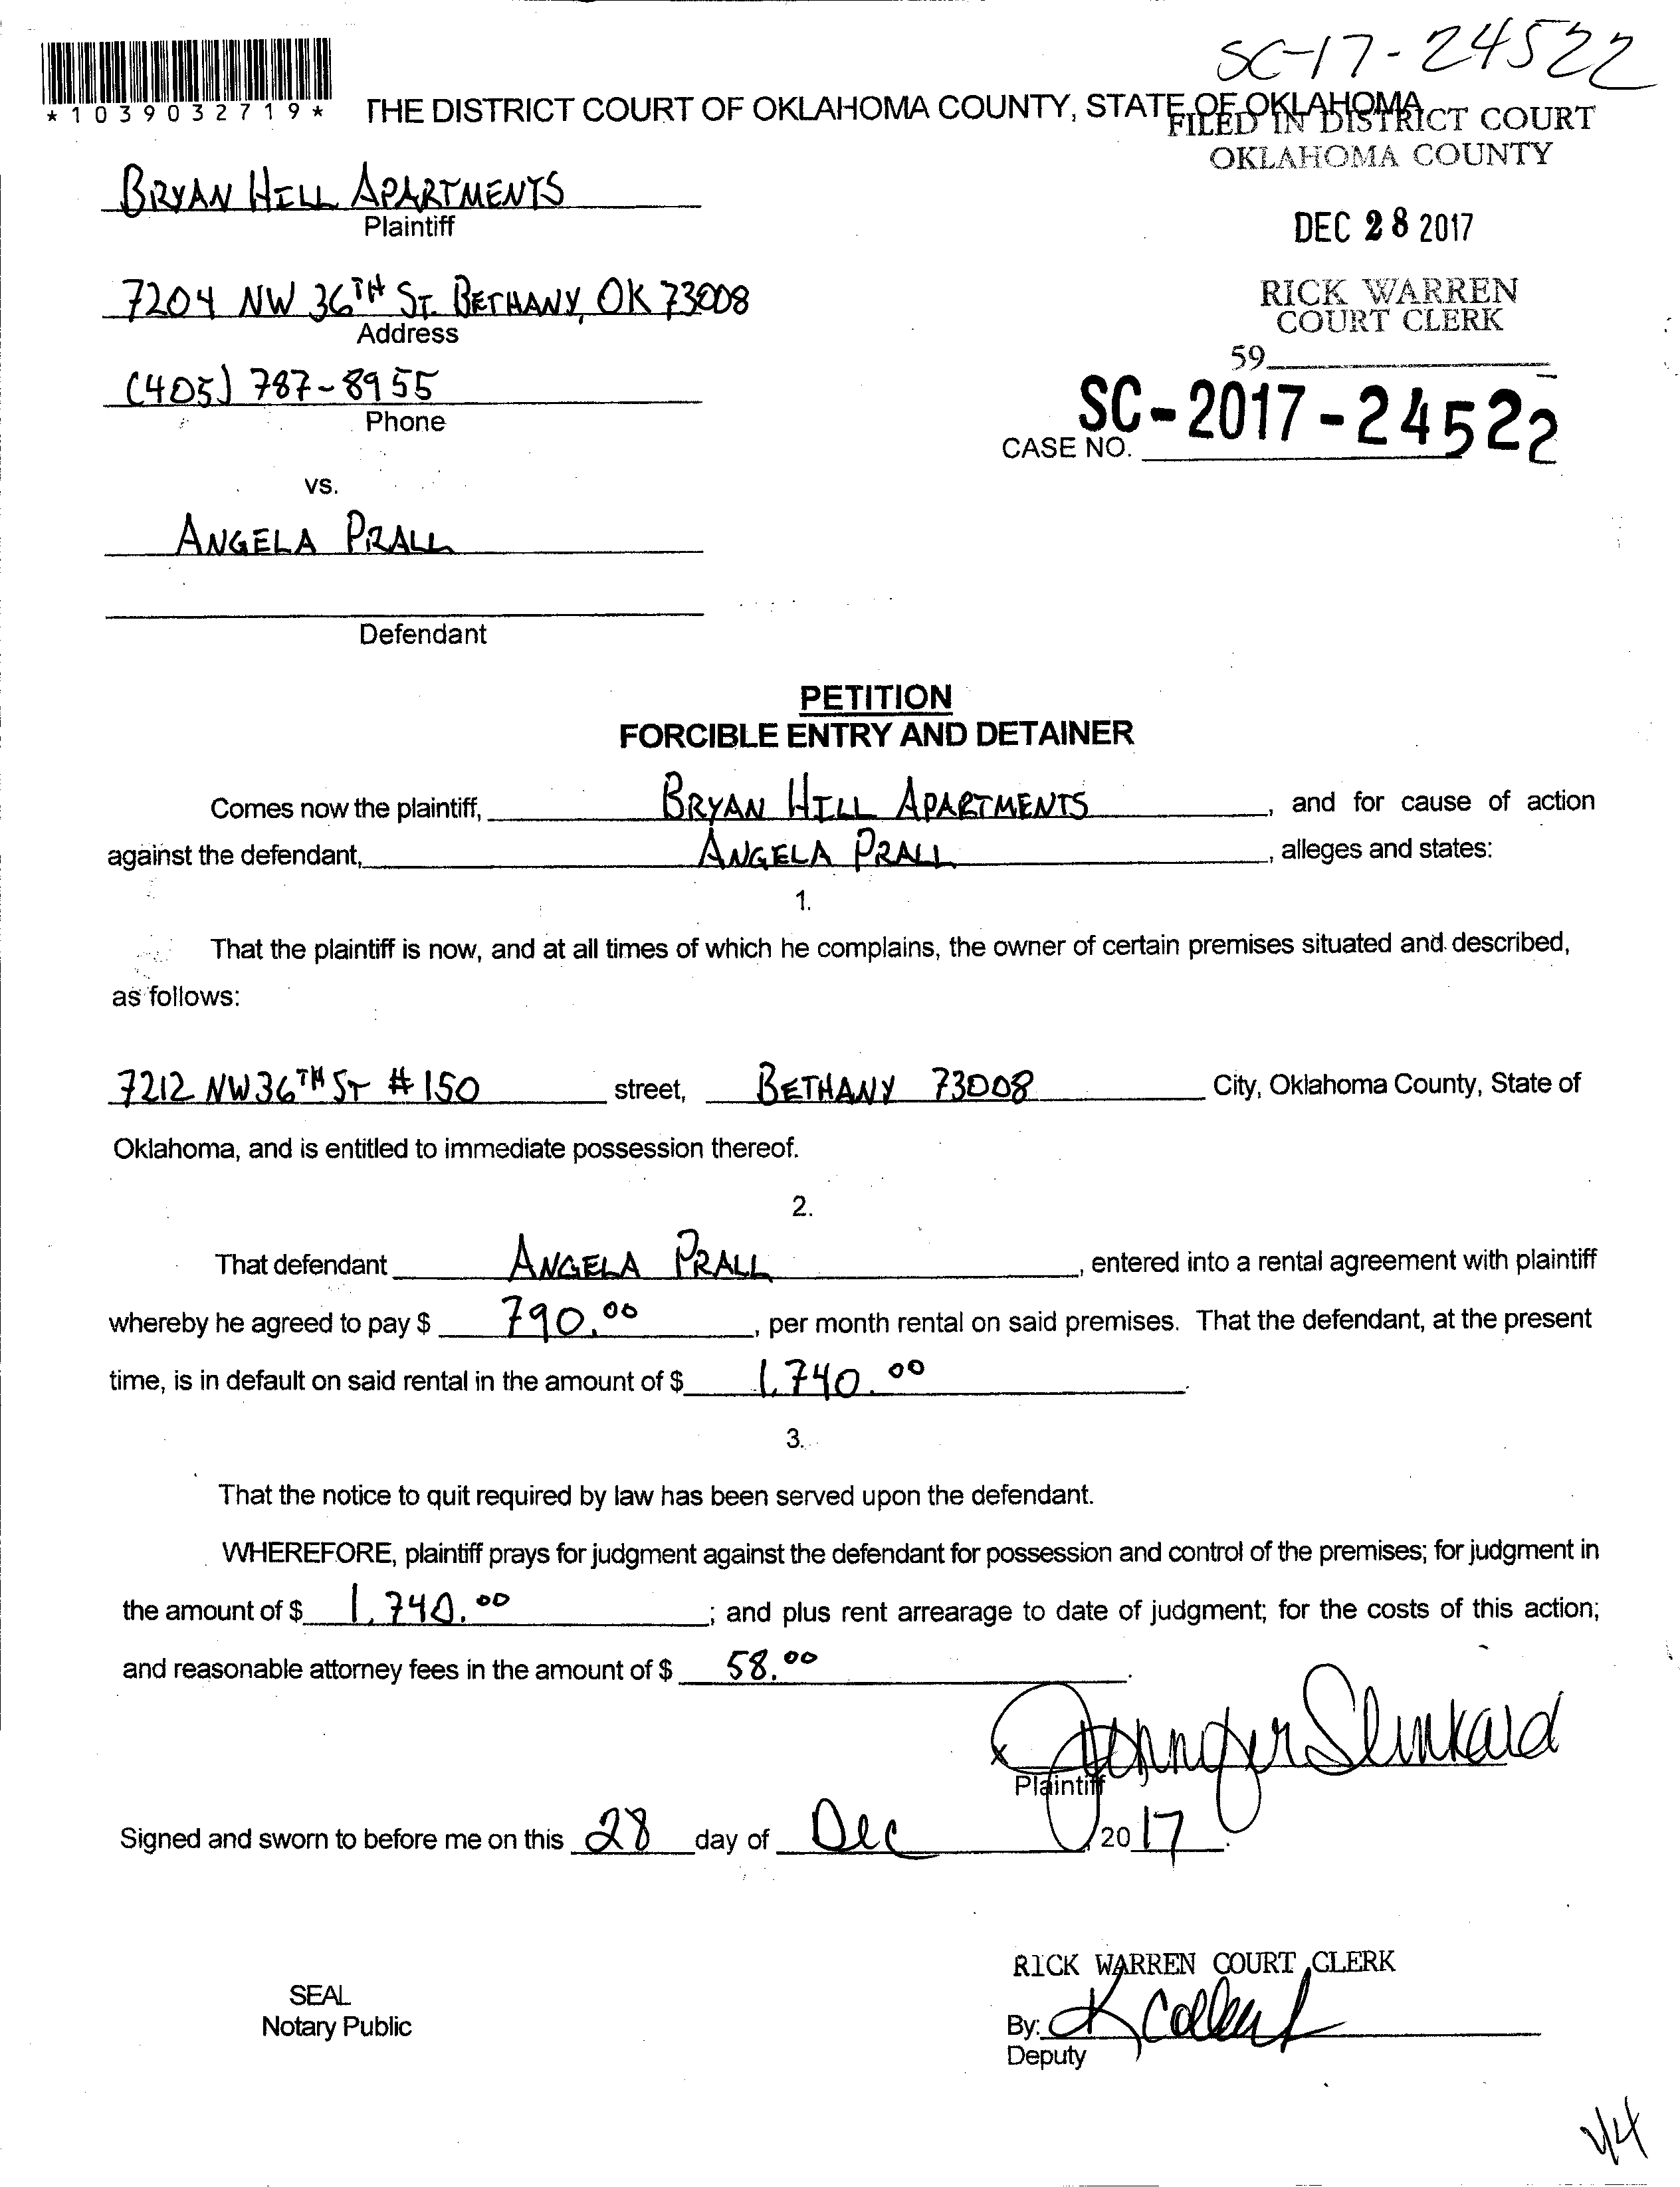 SC-17-24522
*1039032719*
THE DISTRICT COURT OF OKLAHOMA COUNTY, STATE OF OKLAHOMA
FILED IN DISTRICT COURT
OKLAHOMA COUNTY
BRYAN HILL APARTMENTS
Plaintiff
DEC 28 2017
7204 NW 36TH ST. BETHANY, OK 73008
Address
RICK WARREN
COURT CLERK
59
(405) 787-8955
Phone
SC-2017-24522
CASE NO.
vs.
ANGELA PRALL
Defendant
PETITION
FORCIBLE ENTRY AND DETAINER
Comes now the plaintiff, BRYAN HILL APARTMENTS, and for cause of action
against the defendant, ANGELA PRALL, alleges and states:
1.
That the plaintiff is now, and at all times of which he complains, the owner of certain premises situated and described,
as follows:
7212 NW 36TH ST #150 street, BETHANY 73008 City, Oklahoma County, State of
Oklahoma, and is entitled to immediate possession thereof.
2.
That defendant ANGELA PRALL, entered into a rental agreement with plaintiff
whereby he agreed to pay $ 790.00, per month rental on said premises. That the defendant, at the present
time, is in default on said rental in the amount of $ 1,740.00.
3.
That the notice to quit required by law has been served upon the defendant.
WHEREFORE, plaintiff prays for judgment against the defendant for possession and control of the premises; for judgment in
the amount of $ 1,740.00; and plus rent arrearage to date of judgment; for the costs of this action;
and reasonable attorney fees in the amount of $ 58.00.
x Jennifer Slinkard
Plaintiff
Signed and sworn to before me on this 28 day of Dec, 2017.
RICK WARREN COURT CLERK
SEAL
Notary Public
By: K
Deputy